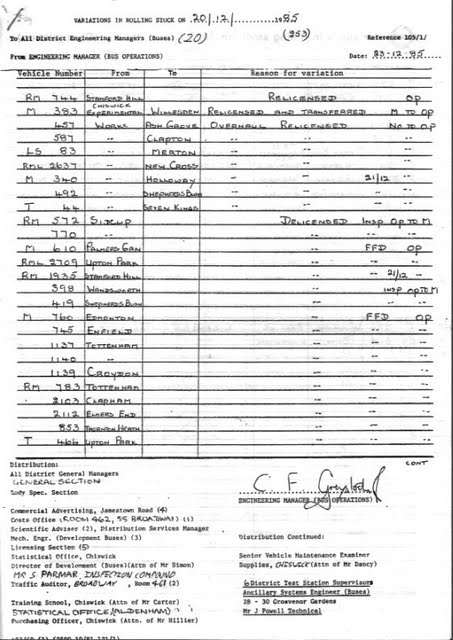 VARIATIONS IN ROLLING STOCK ON 20/12/ 1985
To All District Engineering Managers (Buses) (20) (253) Reference 105/1/
From ENGINEERING MANAGER (BUS OPERATIONS) Date: 23-12-85
Vehicle Number From To Reason for variation
RM 744 STAMFORD HILL RELICENSED OP
M 383 CHISWICK EXPERIMENTAL WILLESDEN RELICENSED AND TRANSFERRED M TO OP
457 WORKS ASH GROVE OVERHAUL RELICENSED NO TO OP
587 -- CLAPTON -- -- --
LS 83 -- MERTON -- -- --
RML 2637 -- NEW CROSS -- -- --
M 340 -- HOLLOWAY -- 21/12 --
492 -- SHEPHERDS BUSH -- -- --
T 44 -- SEVEN KINGS -- -- --
RM 572 SIDCUP DELICENSED INSP OP TO M
770 -- -- -- --
M 610 PALMERS GRN -- FFD OP
RML 2709 UPTON PARK -- -- --
RM 1935 STAMFORD HILL -- -- 21/12 --
398 WANDSWORTH -- INSP OP TO M
419 SHEPHERDS BUSH -- -- --
M 760 EDMONTON -- FFD OP
745 ENFIELD -- -- --
1137 TOTTENHAM -- -- --
1140 -- -- -- --
1139 CROYDON -- -- --
RM 783 TOTTENHAM -- -- --
2103 CLAPHAM -- -- --
2112 ELMERS END -- -- --
853 THORNTON HEATH -- -- --
T 466 UPTON PARK -- -- --
CONT
Distribution:
All District General Managers
GENERAL SECTION
Body Spec. Section
C. F.
ENGINEERING MANAGER (BUS OPERATIONS)
Commercial Advertising, Jamestown Road (4)
Costs Office (ROOM 462, 55 BROADWAY) (1)
Scientific Adviser (2), Distribution Services Manager
Mech. Engr. (Development Buses) (3)
Licensing Section (5)
Statistical Office, Chiswick
Director of Development (Buses)(Attn of Mr Simon)
MR S PARMAR, INSPECTION COMPOUND
Traffic Auditor, BROADWAY, Room 461 (2)
Training School, Chiswick (Attn of Mr Carter)
STATISTICAL OFFICE (ALDENHAM)
Purchasing Officer, Chiswick (Attn of Mr Hillier)
Distribution Continued:
Senior Vehicle Maintenance Examiner
Supplies, CHISWICK (Attn of Mr Dancy)
6 District Test Station Supervisors
Ancillary Systems Engineer (Buses)
28 - 30 Grosvenor Gardens
Mr J Powell Technical